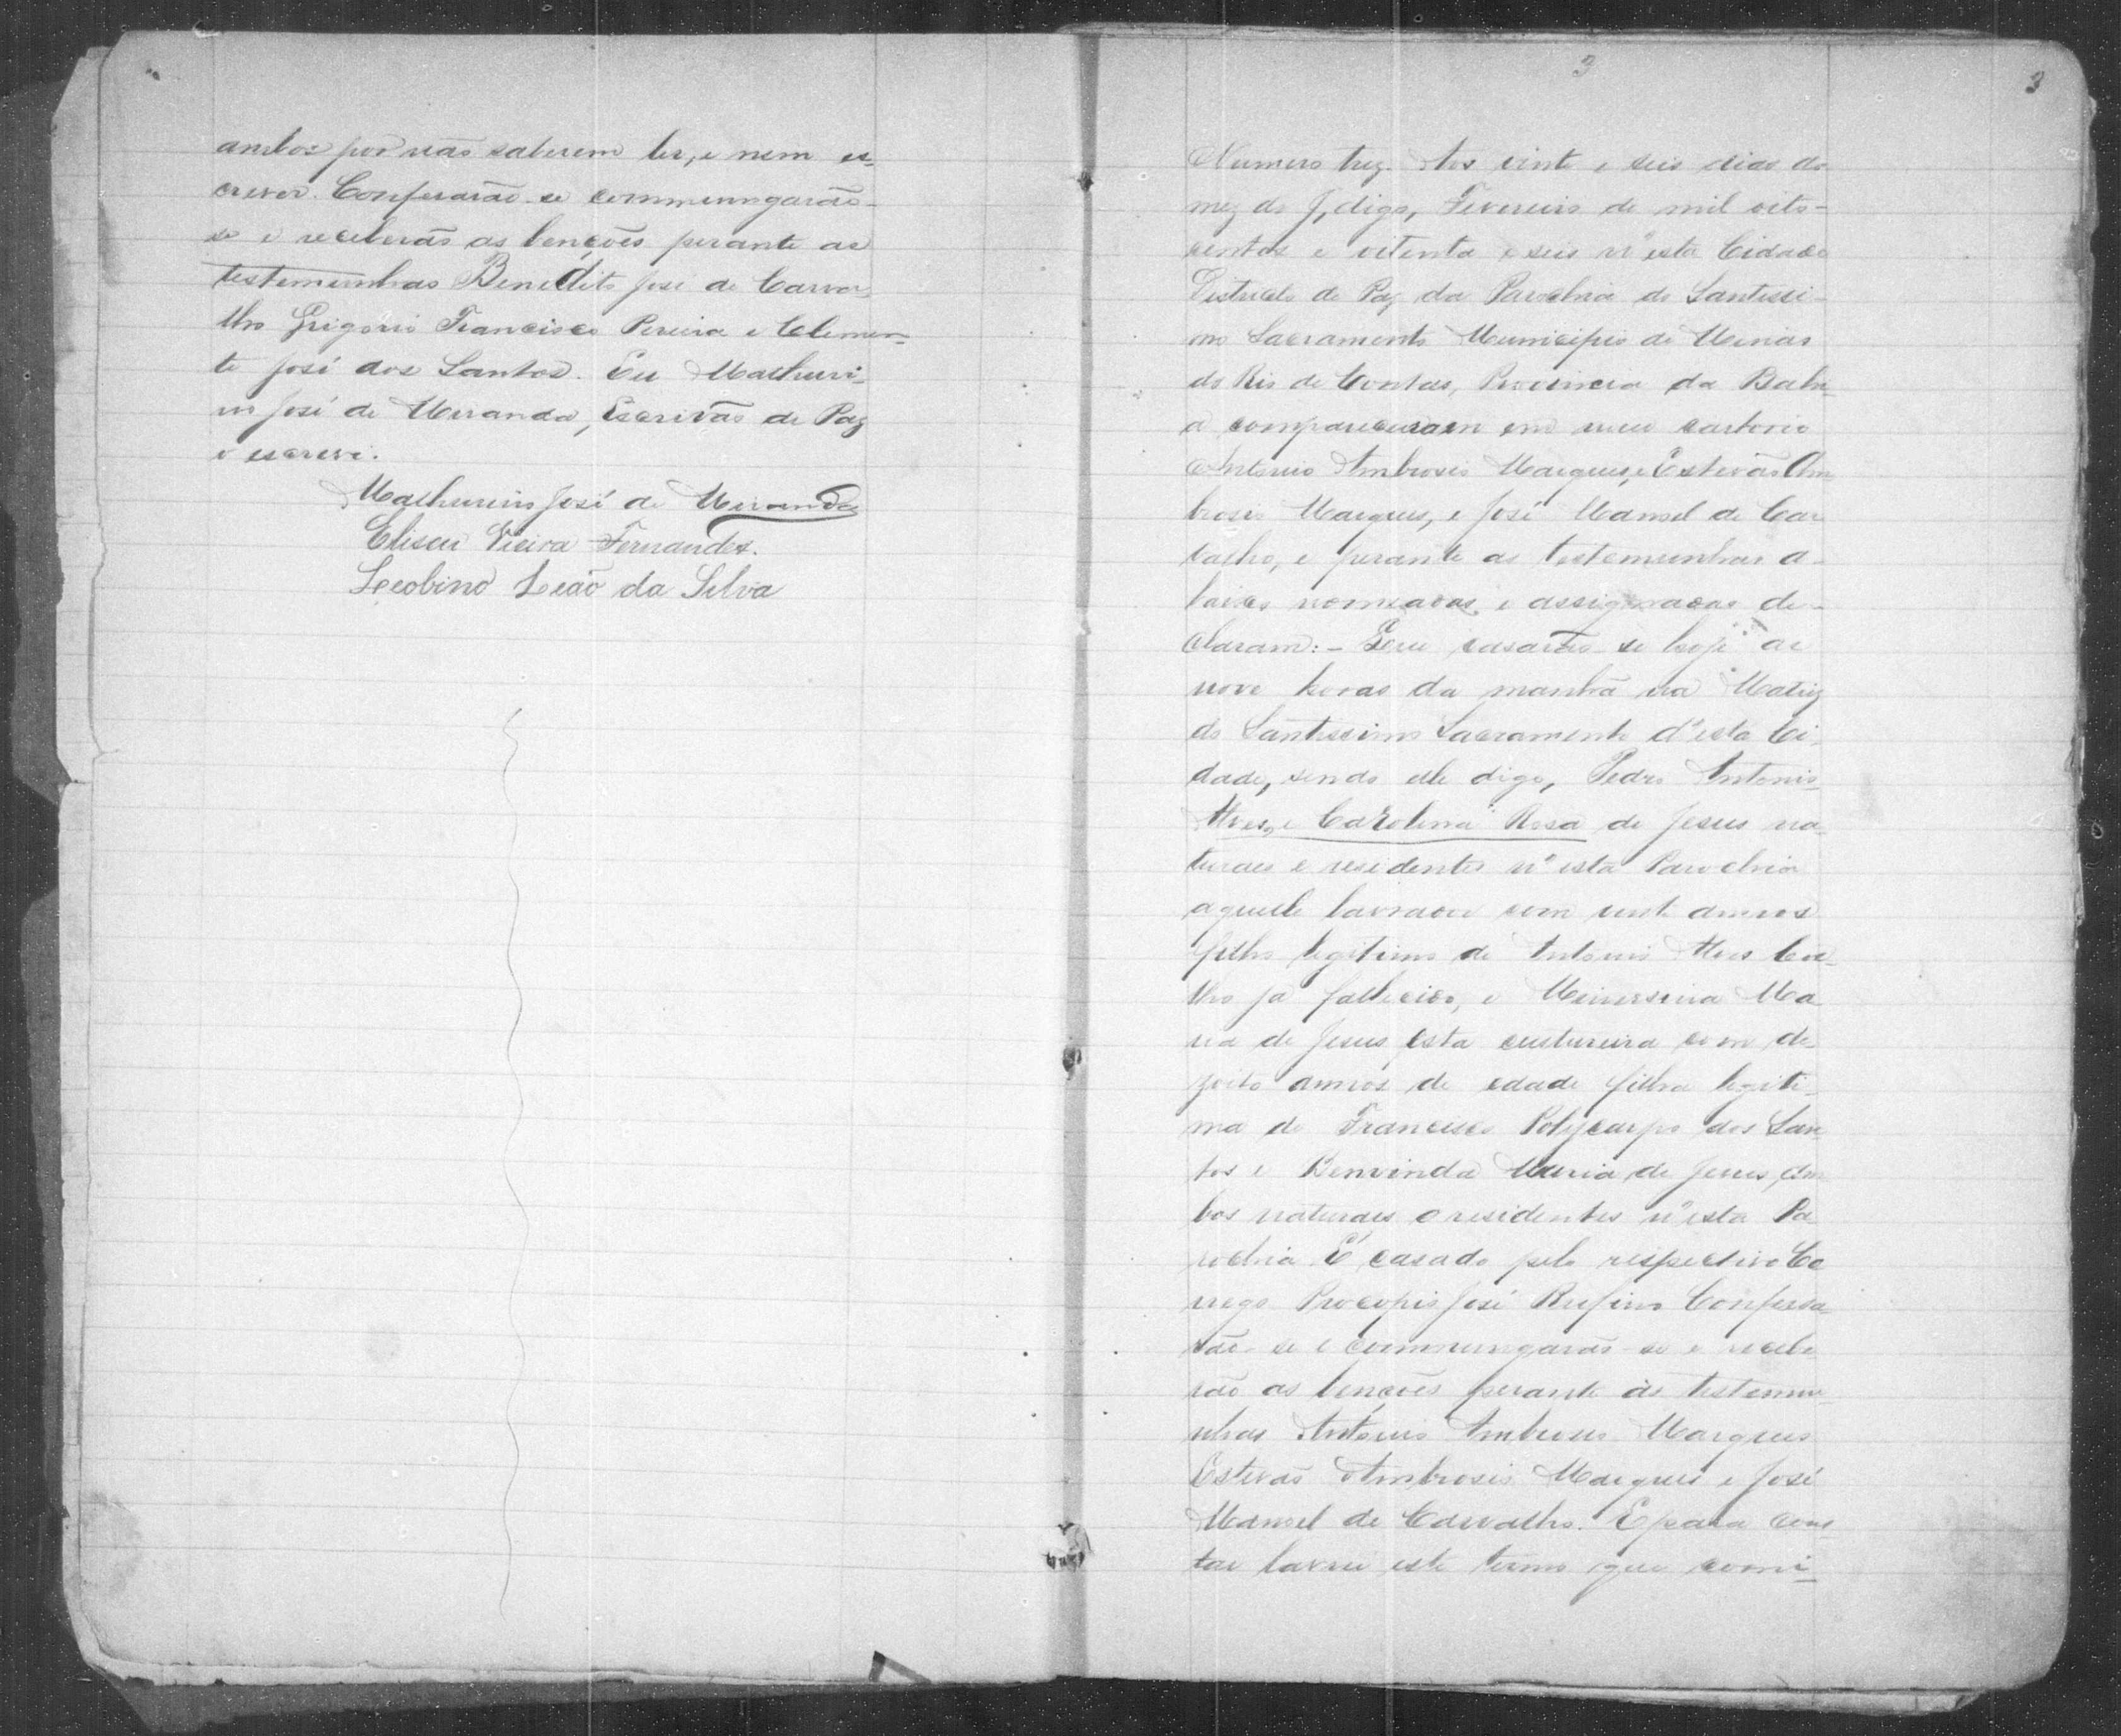 ambos por não saberem ler, e nem es-
crever. Confesarão-se commungarão-
se e receberão as benções perante as
testemunhas Benedito José de Carva-
lho Grigorio Francisco Pereira e Clemen-
te José dos Santos. Eu Mathuri-
no José de Miranda, Escrivão de Paz
o escrevi.
Mathurino José de Miranda
Eliseu Vieira Fernandes.
Leobino Leão da Silva
3
3
Numero trez. Aos vinte e seis dias do
mez de J, digo, Fevereiro de mil oito-
centos e oitenta e seis n'esta Cidade
Districto de Paz da Parochia do Santissi-
mo Sacramento Municipio de Minas
do Rio de Contas, Provincia da Bahi-
a compareceram em meu cartorio
Antonio Ambrosio Marques, e Estevão Am
brosio Marques, e José Manoel de Car
valho, e perante as testemunhas a-
baixo nomeadas e assignadas de-
claram: - Que casarão-se hoje as
nove horas da manhã na Matriz
do Santissimo Sacramento d'esta Ci-
dade, sendo elle digo, Pedro Antonio
Alves, e Carolina Rosa de Jesus na-
turaes e residentes n'esta Parochia
aquelle lavrador com vinte annos
filho legitimo de Antonio Alves Coe-
lho já fallecido, e Minersina Ma
ria de Jesus esta custureira com de-
zoito annos de edade filha legiti-
ma de Francisco Polycarpo dos San-
tos e Benvinda Maria de Jesus, am
bos naturaes e residentes n'esta Pa
rochia. É casado pelo respectivo Co
nego Procopio José Rufino Confessa-
rão-se e commungarão-se e recebe
rão as benções perante as testemu-
nhas Antonio Ambrosio Marques
Estevão Ambrosio Marques e José
Manoel de Carvalho. E para cons
tar lavrei este termo que comi-